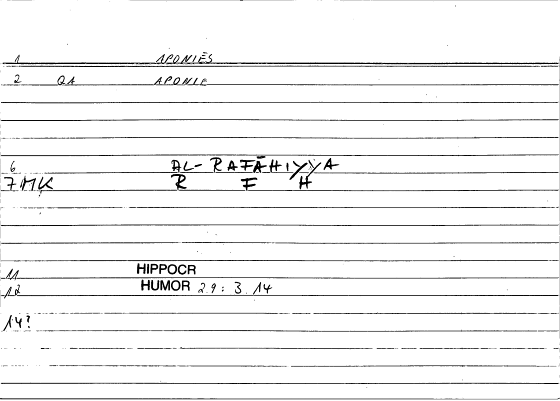 1 APONIÊS
2 QA APONIE
6 AL- RAFĀHIYYA
7 MK R F H
11 HIPPOCR
12 HUMOR 29: 3.14
14?